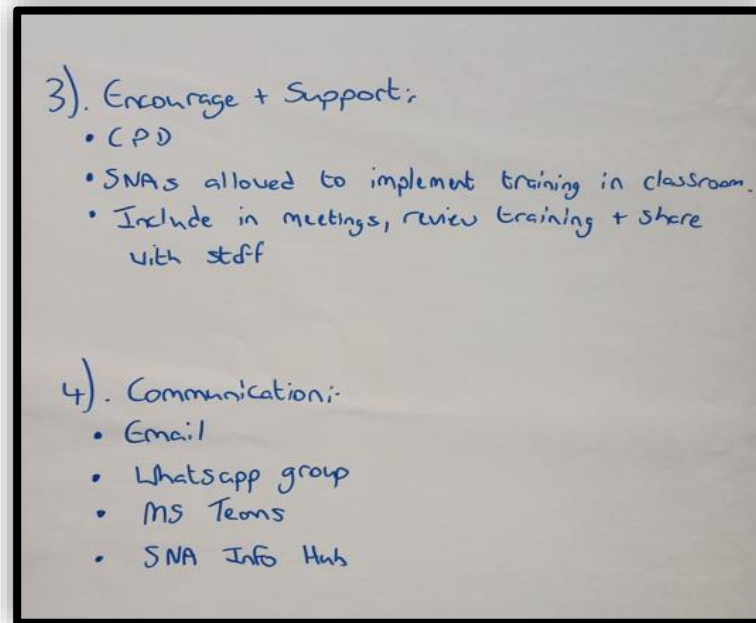 3). Encourage + Support:-
• CPD
• SNAs allowed to implement training in classroom.
• Include in meetings, review training + share
with staff
4). Communication:-
• Email
• Whatsapp group
• MS Teams
• SNA Info Hub